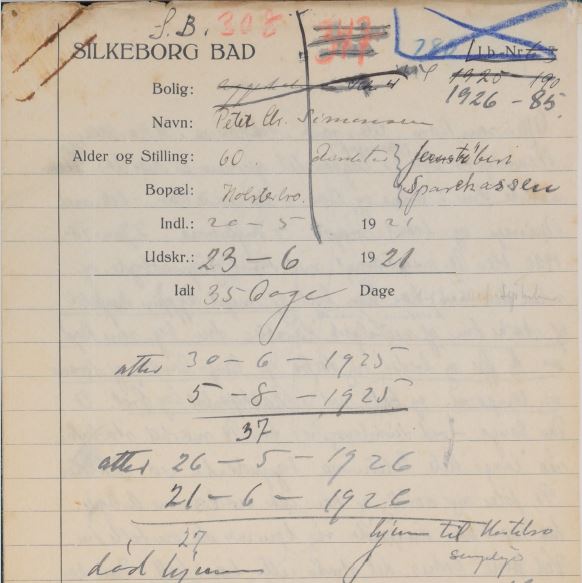 S.B. 308
SILKEBORG BAD
Lb.-Nr.
1925 190
1926 - 85.
Bolig:
Navn: Peter Chr. Simonsen
Alder og Stilling: 60. Direktør
Sparekassen
Bopæl: Holstebro.
Indl.: 20 - 5 1921
Udskr.: 23 - 6 1921
Ialt 35 Dage Dage
atter 30 - 6 - 1925
5 - 8 - 1925
37
atter 26 - 5 - 1926
21 - 6 - 1926
27 hjem til Holstebro
død hjemme